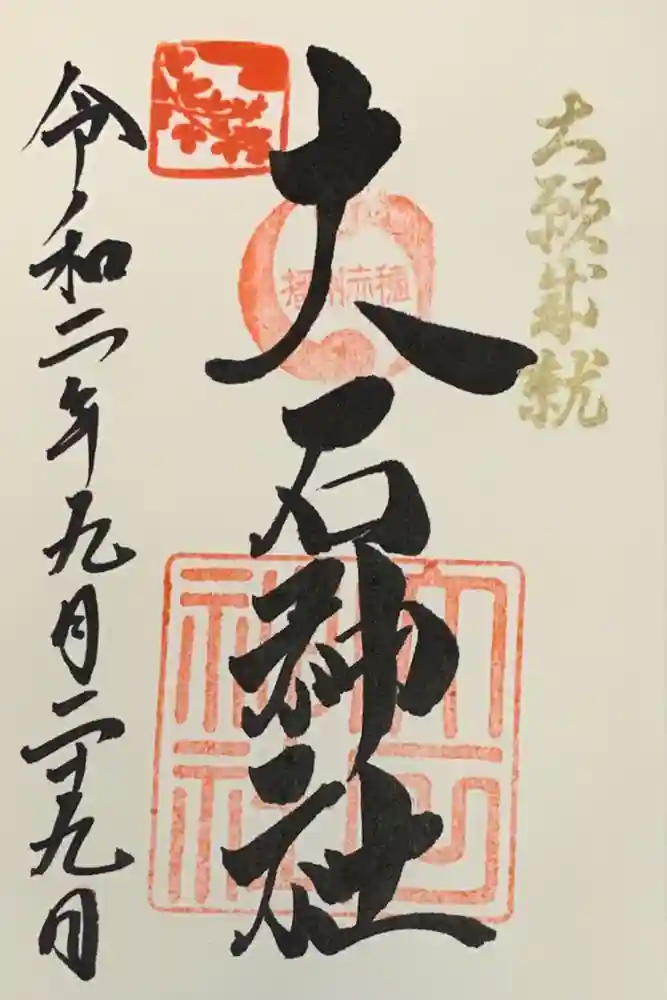 大願成就
大石神社
播州赤穂
大石神社
令和二年九月二十九日